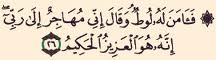 ۞ فَـَٔامَنَ لَهُۥ لُوطٌ ۘ وَقَالَ إِنِّى مُهَاجِرٌ إِلَىٰ رَبِّىٓ ۖ
إِنَّهُۥ هُوَ ٱلْعَزِيزُ ٱلْحَكِيمُ ٢٦